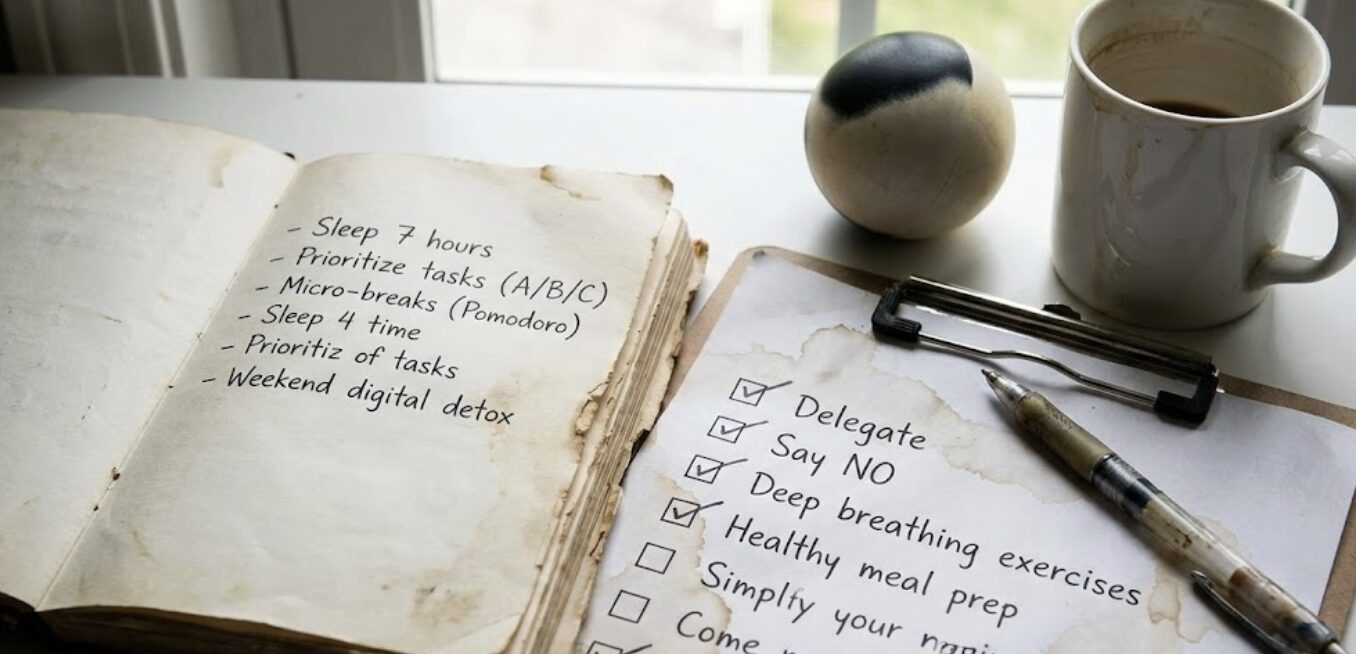 - Sleep 7 hours
- Prioritize tasks (A/B/C)
- Micro-breaks (Pomodoro)
- Sleep 4 time
- Prioritiz of tasks
- Weekend digital detox
Delegate
Say NO
Deep breathing exercises
Healthy meal prep
Simplfy your
Come